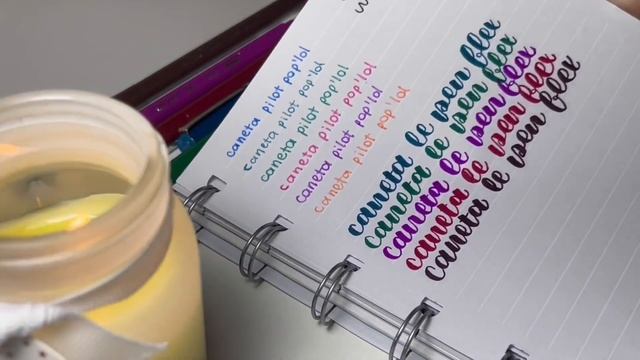 caneta pilot pop'lol
caneta pilot pop'lol
caneta pilot pop'lol
caneta pilot pop'lol
caneta pilot pop'lol
caneta pilot pop'lol
caneta le pen flex
caneta le pen flex
caneta le pen flex
caneta le pen flex
caneta le pen flex